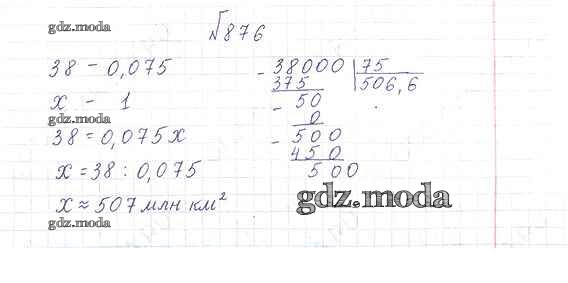 №876
gdz.moda
38 - 0,075
x - 1
gdz.moda
38 = 0,075x
x = 38 : 0,075
x ≈ 507 млн км²
gdz.moda
- 38000 | 75
375
506,6
- 50
0
- 500
450
500
gdz.moda